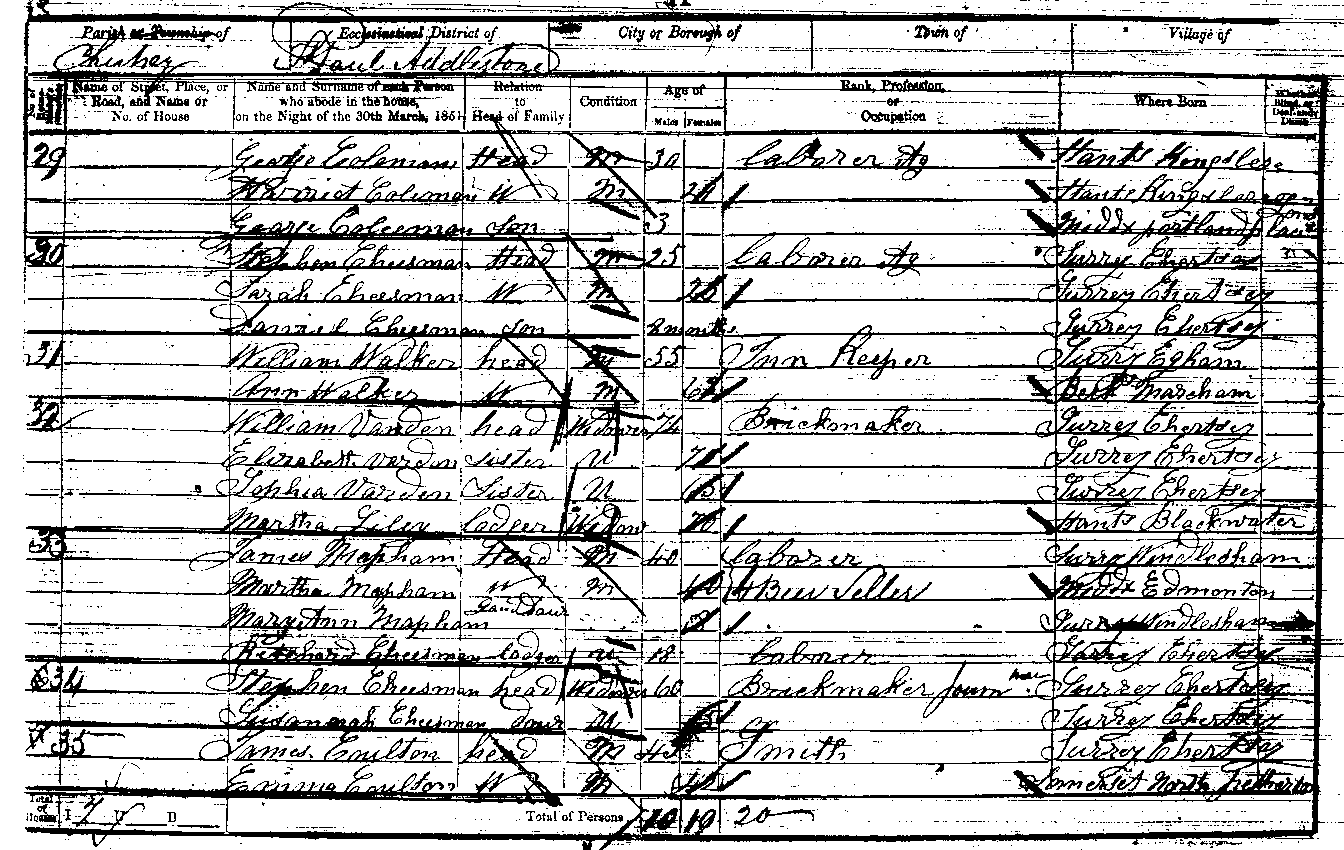 Parish or Township of Ecclesiastical District of City or Borough of Town of Village of
Chertsey St Paul Addlestone
Name of Street, Place, or Road, and Name or No. of House
Name and Surname of each Person who abode in the house, on the Night of the 30th March, 1851
Relation to Head of Family
Condition
Age of
Males Females
Rank, Profession, or Occupation
Where Born
Whether Blind, or Deaf-and-Dumb
29 George Coleman Head M 30 Laborer Ag Hants Kingsley
Harriet Coleman W M Hants Kingsley
George Coleman son 3 Middx portland place
30 Stephen Cheesman Head M 25 Laborer Ag Surrey Chertsey
Sarah Cheesman W M Surrey Chertsey
Daniel Cheesman son 8 months Surrey Chertsey
31 William Walker head M 55 Inn Keeper Surry Egham
Ann Walker W M Berk Marcham
32 William Varden head Widower 74 Brickmaker Surrey Chertsey
Elizabeth Varden Sister U 71 Surrey Chertsey
Sophia Varden Sister U Surrey Chertsey
Martha Liley lodger Widow 70 Hants Blackwater
33 James Mapham Head M 40 Laborer Surry Windlesham
Martha Mapham W M 40 Beer Seller Middx Edmonton
Mary Ann Mapham Surry Windlesham
Richard Cheesman lodger U 18 Laborer Surrey Chertsey
34 Stephen Cheesman head Widower 60 Brickmaker Journ Surrey Chertsey
Susannah Cheesman Daur U Surrey Chertsey
35 James Coulton head M 45 Smith Surrey Chertsey
Emma Coulton W M Somerset North Petherton
Total of Houses I 7 U B Total of Persons 10 10 20